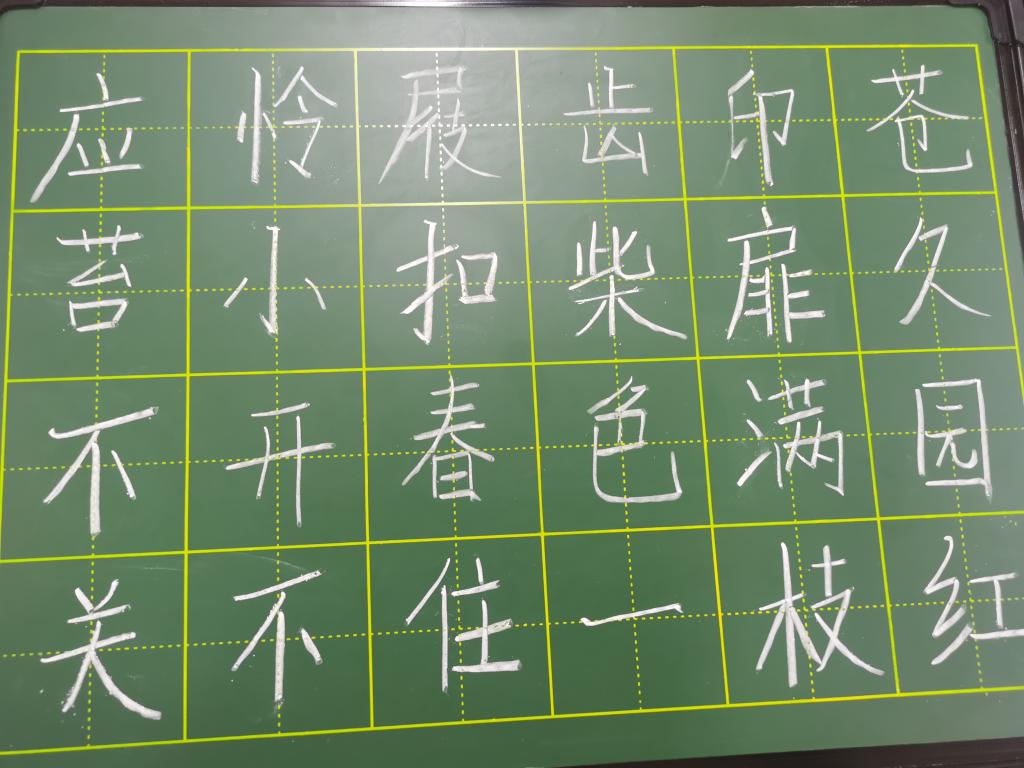 应怜屐齿印苍
苔小扣柴扉久
不开春色满园
关不住一枝红